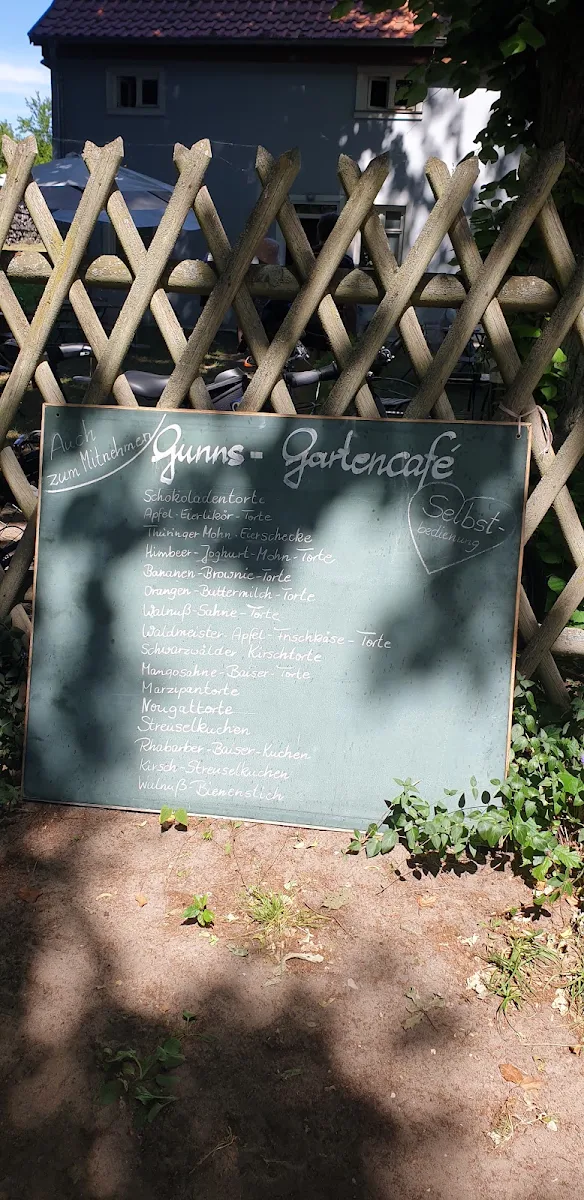 Auch
zum Mitnehmen
Gunns - Gartencafé
Selbst-
bedienung
Schokoladentorte
Apfel-Eierlikör-Torte
Thüringer Mohn-Eierschecke
Himbeer-Joghurt-Mohn-Torte
Bananen-Brownie-Torte
Orangen-Buttermilch-Torte
Walnuß-Sahne-Torte
Waldmeister-Apfel-Frischkäse-Torte
Schwarzwälder Kirschtorte
Mangosahne-Baiser-Torte
Marzipantorte
Nougattorte
Streuselkuchen
Rhabarber-Baiser-Kuchen
Kirsch-Streuselkuchen
Walnuß-Bienenstich